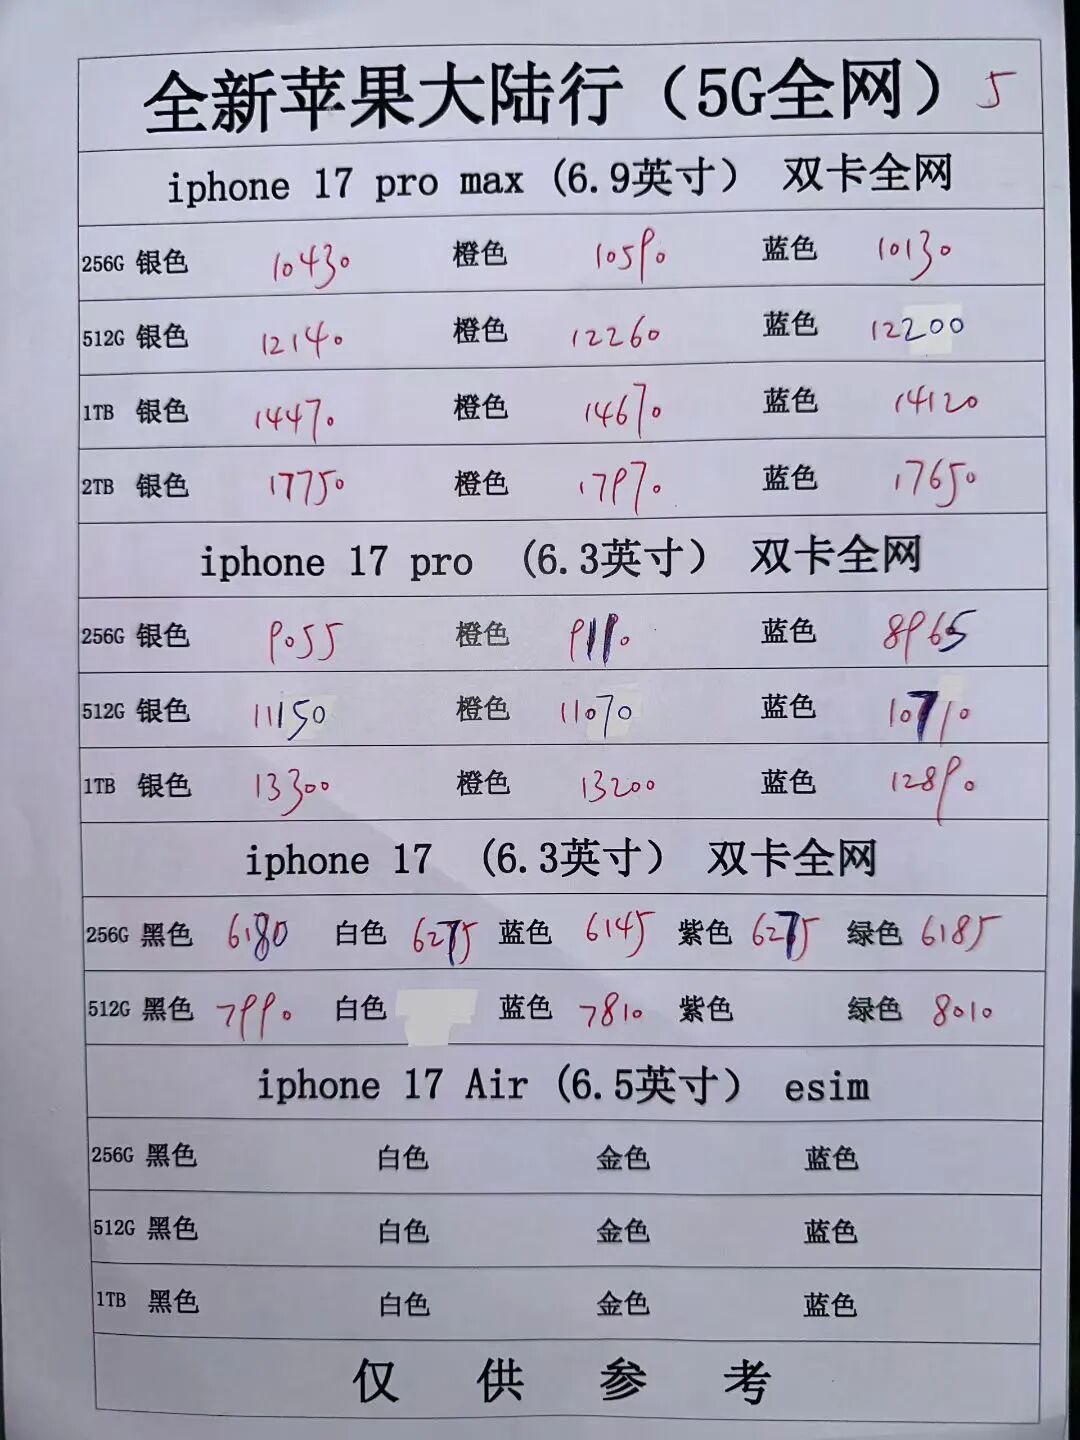 全新苹果大陆行（5G全网） 5
iphone 17 pro max (6.9英寸） 双卡全网
256G 银色 10430 橙色 10590 蓝色 10130
512G 银色 12140 橙色 12260 蓝色 12200
1TB 银色 14470 橙色 14670 蓝色 14120
2TB 银色 17750 橙色 17970 蓝色 17650
iphone 17 pro (6.3英寸） 双卡全网
256G 银色 9055 橙色 9110 蓝色 8965
512G 银色 11150 橙色 11070 蓝色 10710
1TB 银色 13300 橙色 13200 蓝色 12890
iphone 17 (6.3英寸） 双卡全网
256G 黑色 6180 白色 6275 蓝色 6145 紫色 6275 绿色 6185
512G 黑色 7990 白色 蓝色 7810 紫色 绿色 8010
iphone 17 Air (6.5英寸） esim
256G 黑色 白色 金色 蓝色
512G 黑色 白色 金色 蓝色
1TB 黑色 白色 金色 蓝色
仅 供 参 考